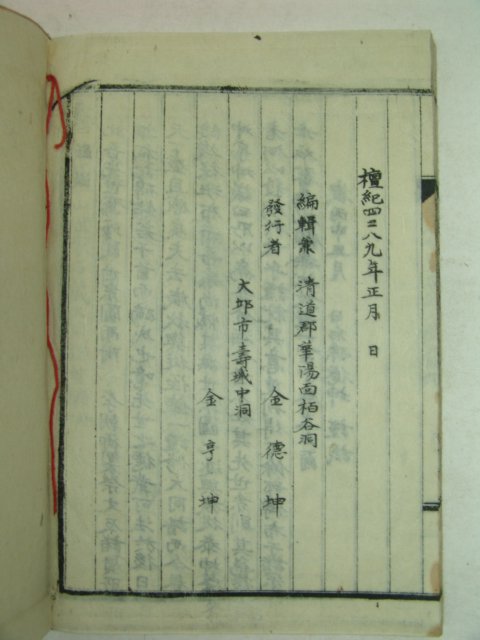 檀紀四二八九年正月 日
編輯兼 清道郡華陽面栢谷洞
發行者 金德坤
大邱市壽城中洞
金亨坤